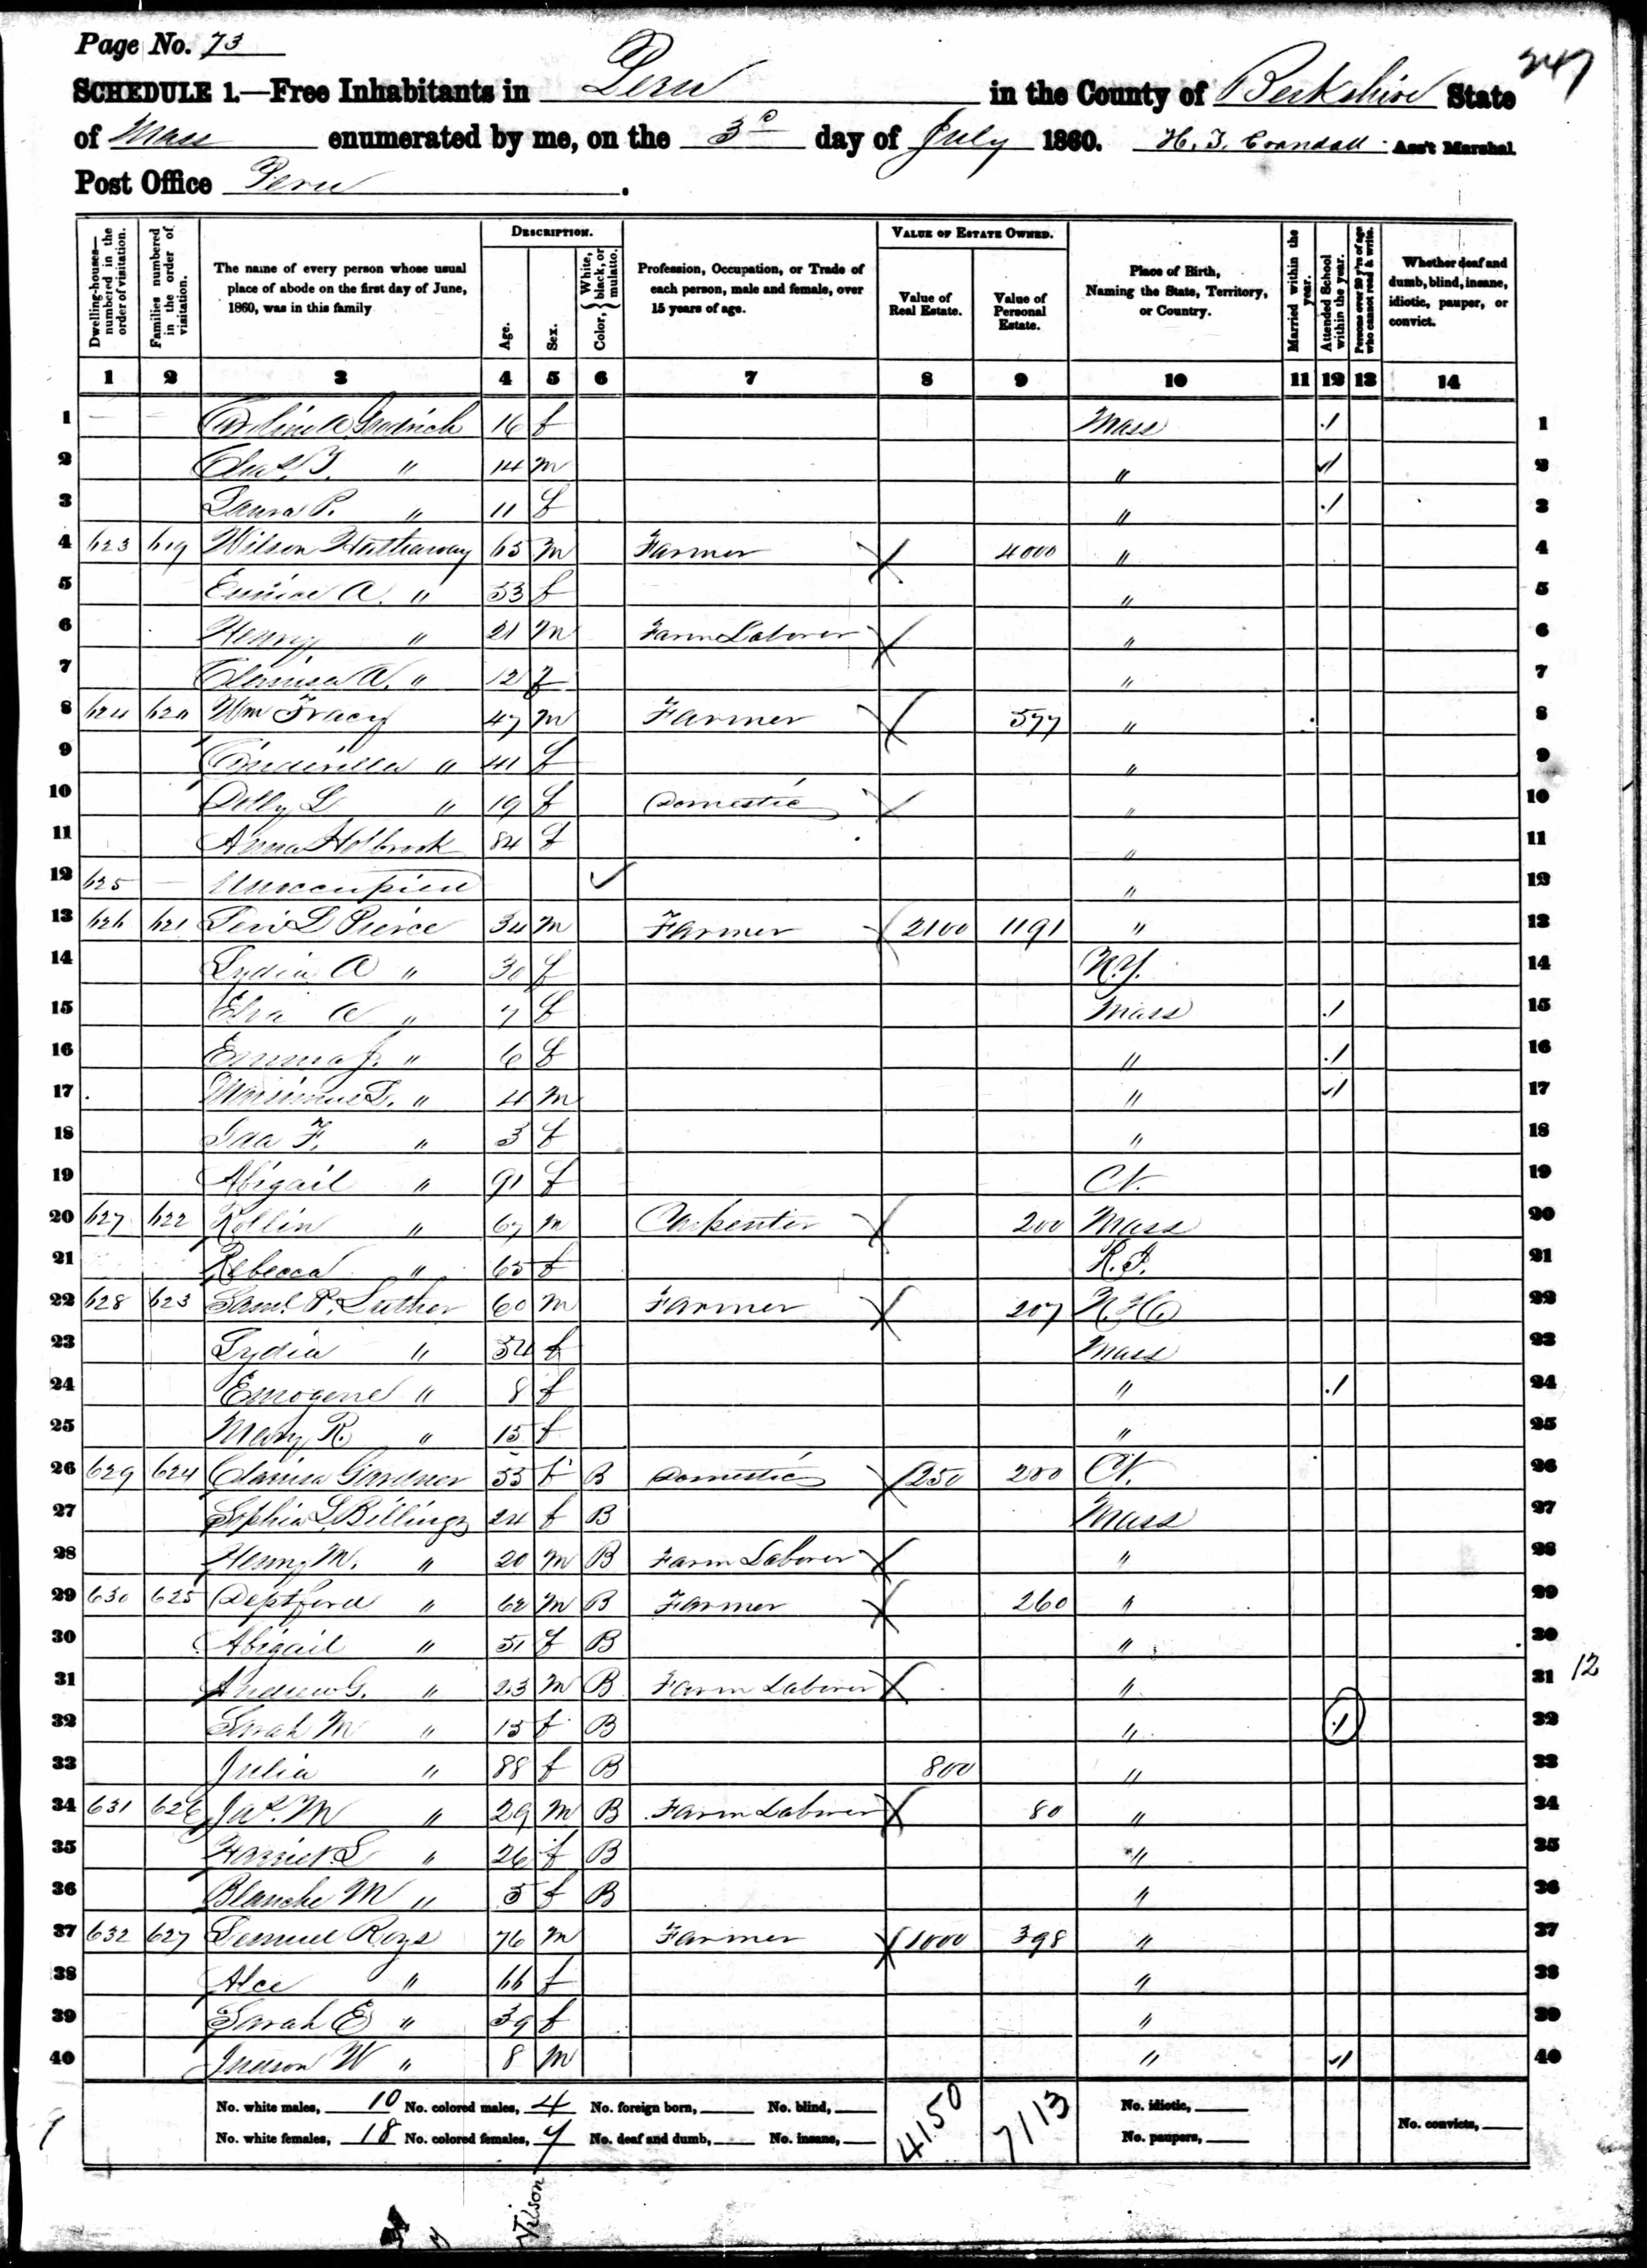 Page No. 73
247
SCHEDULE 1.—Free Inhabitants in Peru in the County of Berkshire State
of Mass enumerated by me, on the 3d day of July 1860. H. T. Crandall Ass't Marshal
Post Office Peru.
Dwelling-houses—numbered in the order of visitation.
Families numbered in the order of visitation.
The name of every person whose usual place of abode on the first day of June, 1860, was in this family
DESCRIPTION.
Age.
Sex.
Color, { White, black, or mulatto.
Profession, Occupation, or Trade of each person, male and female, over 15 years of age.
VALUE OF ESTATE OWNED.
Value of Real Estate.
Value of Personal Estate.
Place of Birth, Naming the State, Territory, or Country.
Married within the year.
Attended School within the year.
Persons over 20 y'rs of age who cannot read & write.
Whether deaf and dumb, blind, insane, idiotic, pauper, or convict.
1 2 3 4 5 6 7 8 9 10 11 12 13 14
1 — — Goodrich 16 f Mass / 1
2 Chas. T. " 14 m " / 2
3 Laura P. " 11 f " / 3
4 623 619 Wilson Hathaway 65 m Farmer 4000 " 4
5 Eunice A. " 53 f " 5
6 Henry " 21 m Farm Laborer " 6
7 A. " 12 f " 7
8 624 620 Wm Tracy 47 m Farmer 577 " 8
9 " 41 f " 9
10 Dolly L " 19 f Domestic " 10
11 Anna Holbrook 84 f " 11
12 625 — Unoccupied ✓ " 12
13 626 621 Levi L Pierce 34 m Farmer 2100 1191 " 13
14 Lydia A " 30 f N.Y. 14
15 A " 7 f Mass / 15
16 Emma J. " 6 f " / 16
17 " 4 m " / 17
18 Ida F. " 3 f " 18
19 Abigail " 91 f Ct. 19
20 627 622 Rollin " 67 m Carpenter 200 Mass 20
21 Rebecca " 65 f R.I. 21
22 628 623 Saml. P. Luther 60 m Farmer 207 N.H. 22
23 Lydia " 54 f Mass 23
24 Emogene " 8 f " / 24
25 Mary R. " 15 f " 25
26 629 624 Clarissa Gardner 55 f B Domestic 250 200 Ct. 26
27 Sophia L Billings 24 f B Mass 27
28 Henry M. " 20 m B Farm Laborer " 28
29 630 625 Deptford " 62 m B Farmer 260 " 29
30 Abigail " 51 f B " 30
31 Andrew G. " 23 m B Farm Laborer " 31 12
32 Sarah M " 15 f B " / 32
33 Julia " 88 f B 800 " 33
34 631 626 Jas. M " 29 m B Farm Laborer 80 " 34
35 Harriet L " 26 f B " 35
36 Blanche M " 5 f B " 36
37 632 627 Lemuel Rogs 76 m Farmer 1000 398 " 37
38 Alce " 66 f " 38
39 Sarah E " 39 f " 39
40 Judson W " 8 m " / 40
No. white males, 10 No. colored males, 4 No. foreign born, No. blind, 4150 7113 No. idiotic,
No. white females, 18 No. colored females, 7 No. deaf and dumb, No. insane, No. paupers, No. convicts,
Wilson